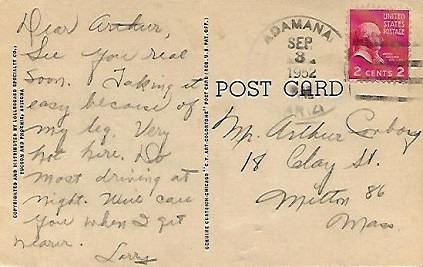 Dear Arthur,
See you real
soon. Taking it
easy because of
my leg. Very
hot here. Do
most driving at
night. Will
you when I get
nearer.
Larry
COPYRIGHTED AND DISTRIBUTED BY LOLLESGARD SPECIALTY CO.,
TUCSON AND PHOENIX, ARIZONA
GENUINE CURTEICH-CHICAGO "C. T. ART-COLORTONE" POST CARD (REG. U.S. PAT. OFF.)
POST CARD
ADAMANA
SEP
3
1952
ARIZ.
UNITED STATES
POSTAGE
2 CENTS 2
Mr. Arthur
18 Clay St.
Milton 86
Mass